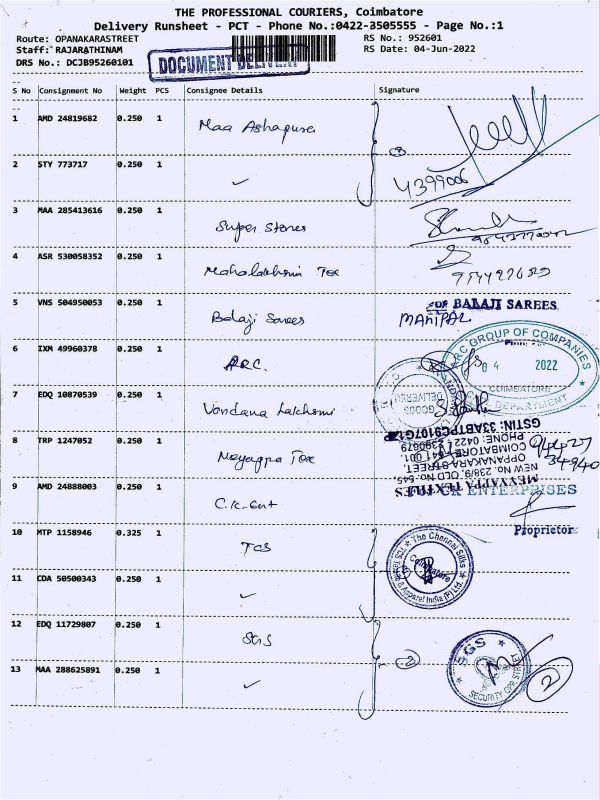 THE PROFESSIONAL COURIERS, Coimbatore
Delivery Runsheet - PCT - Phone No.:0422-3505555 - Page No.:1
Route: OPANAKARASTREET RS No.: 952601
Staff: RAJARATHINAM RS Date: 04-Jun-2022
DRS No.: DCJB95260101
DOCUMENT DELIVERY
S No Consignment No Weight PCS Consignee Details Signature
1 AMD 24819682 0.250 1 Maa Ashapura
2 STY 773717 0.250 1 ✓
4399006
3 MAA 285413616 0.250 1 Super Stores
4 ASR 530058352 0.250 1 Mahalakshmi Tex
5 VNS 504950053 0.250 1 Balaji Sarees
FOR BALAJI SAREES
MANIPAL
6 IXM 49960378 0.250 1 ARC.
ARC GROUP OF COMPANIES
04 2022
COIMBATORE
DEPARTMENT
7 EDQ 10870539 0.250 1 Vandana Lakshmi
GOODS DELIVERED
8 TRP 1247052 0.250 1 Meyappa Tex
MEYYAPPA TEXTILES
NEW No. 238/9, OLD No. 545,
OPPANAKARA STREET,
COIMBATORE - 641 001
PHONE: 0422 - 2390679
GSTIN: 33ABTPC9107G1Z
94427
34940
9 AMD 24888003 0.250 1 C.K. Ent
CK ENTERPRISES
Proprietor
10 MTP 1158946 0.325 1 TCS
The Chennai Silks
TCS Textile & Apparel India (P) Ltd.
Coimbatore
11 CDA 50500343 0.250 1 ✓
12 EDQ 11729807 0.250 1 SGS
2
SGS
SECURITY OPP. STREET
2
13 MAA 288625891 0.250 1 ✓